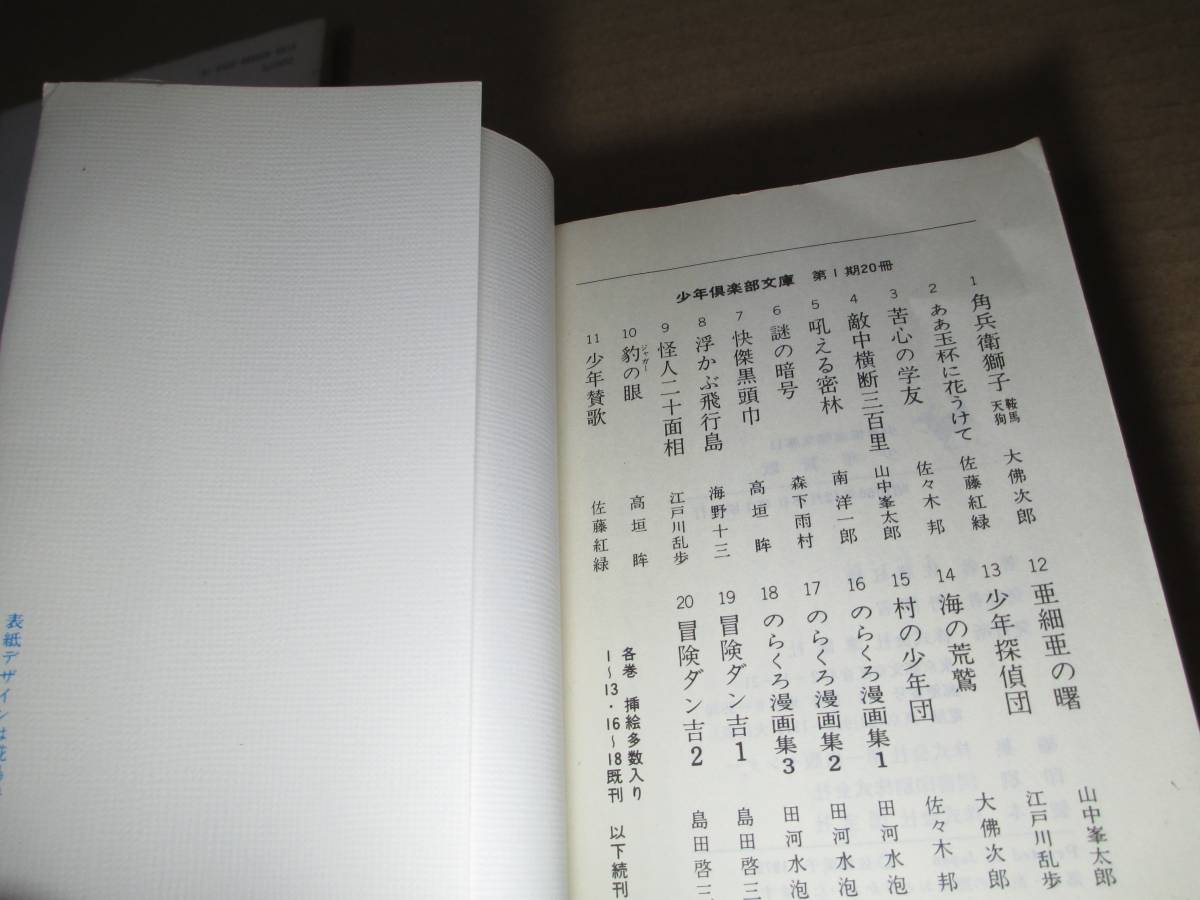 少年倶楽部文庫 第Ⅰ期20冊
1 角兵衛獅子 鞍馬天狗 大佛次郎
2 ああ玉杯に花うけて 佐藤紅緑
3 苦心の学友 佐々木邦
4 敵中横断三百里 山中峯太郎
5 吼える密林 南洋一郎
6 謎の暗号 森下雨村
7 快傑黒頭巾 高垣眸
8 浮かぶ飛行島 海野十三
9 怪人二十面相 江戸川乱歩
10 豹の眼 ジャガー 高垣眸
11 少年賛歌 佐藤紅緑
12 亜細亜の曙 山中峯太郎
13 少年探偵団 江戸川乱歩
14 海の荒鷲 大佛次郎
15 村の少年団 佐々木邦
16 のらくろ漫画集1 田河水泡
17 のらくろ漫画集2 田河水泡
18 のらくろ漫画集3 田河水泡
19 冒険ダン吉1 島田啓三
20 冒険ダン吉2 島田啓三
各巻 挿絵多数入り
1〜13・16〜18既刊 以下続刊
表紙デザインは